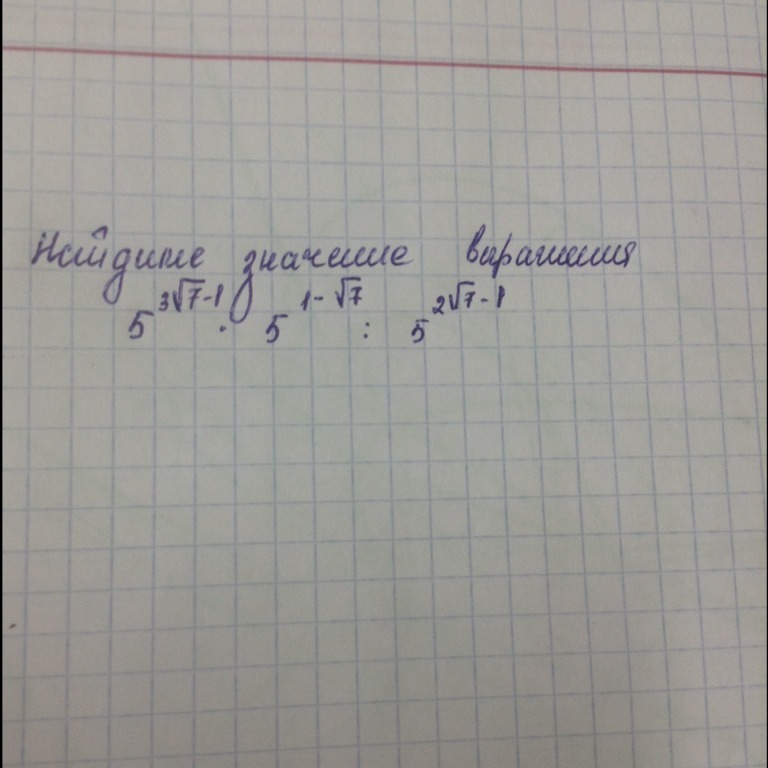 Найдите значение выражения
5^{3√7-1} · 5^{1-√7} : 5^{2√7-1}